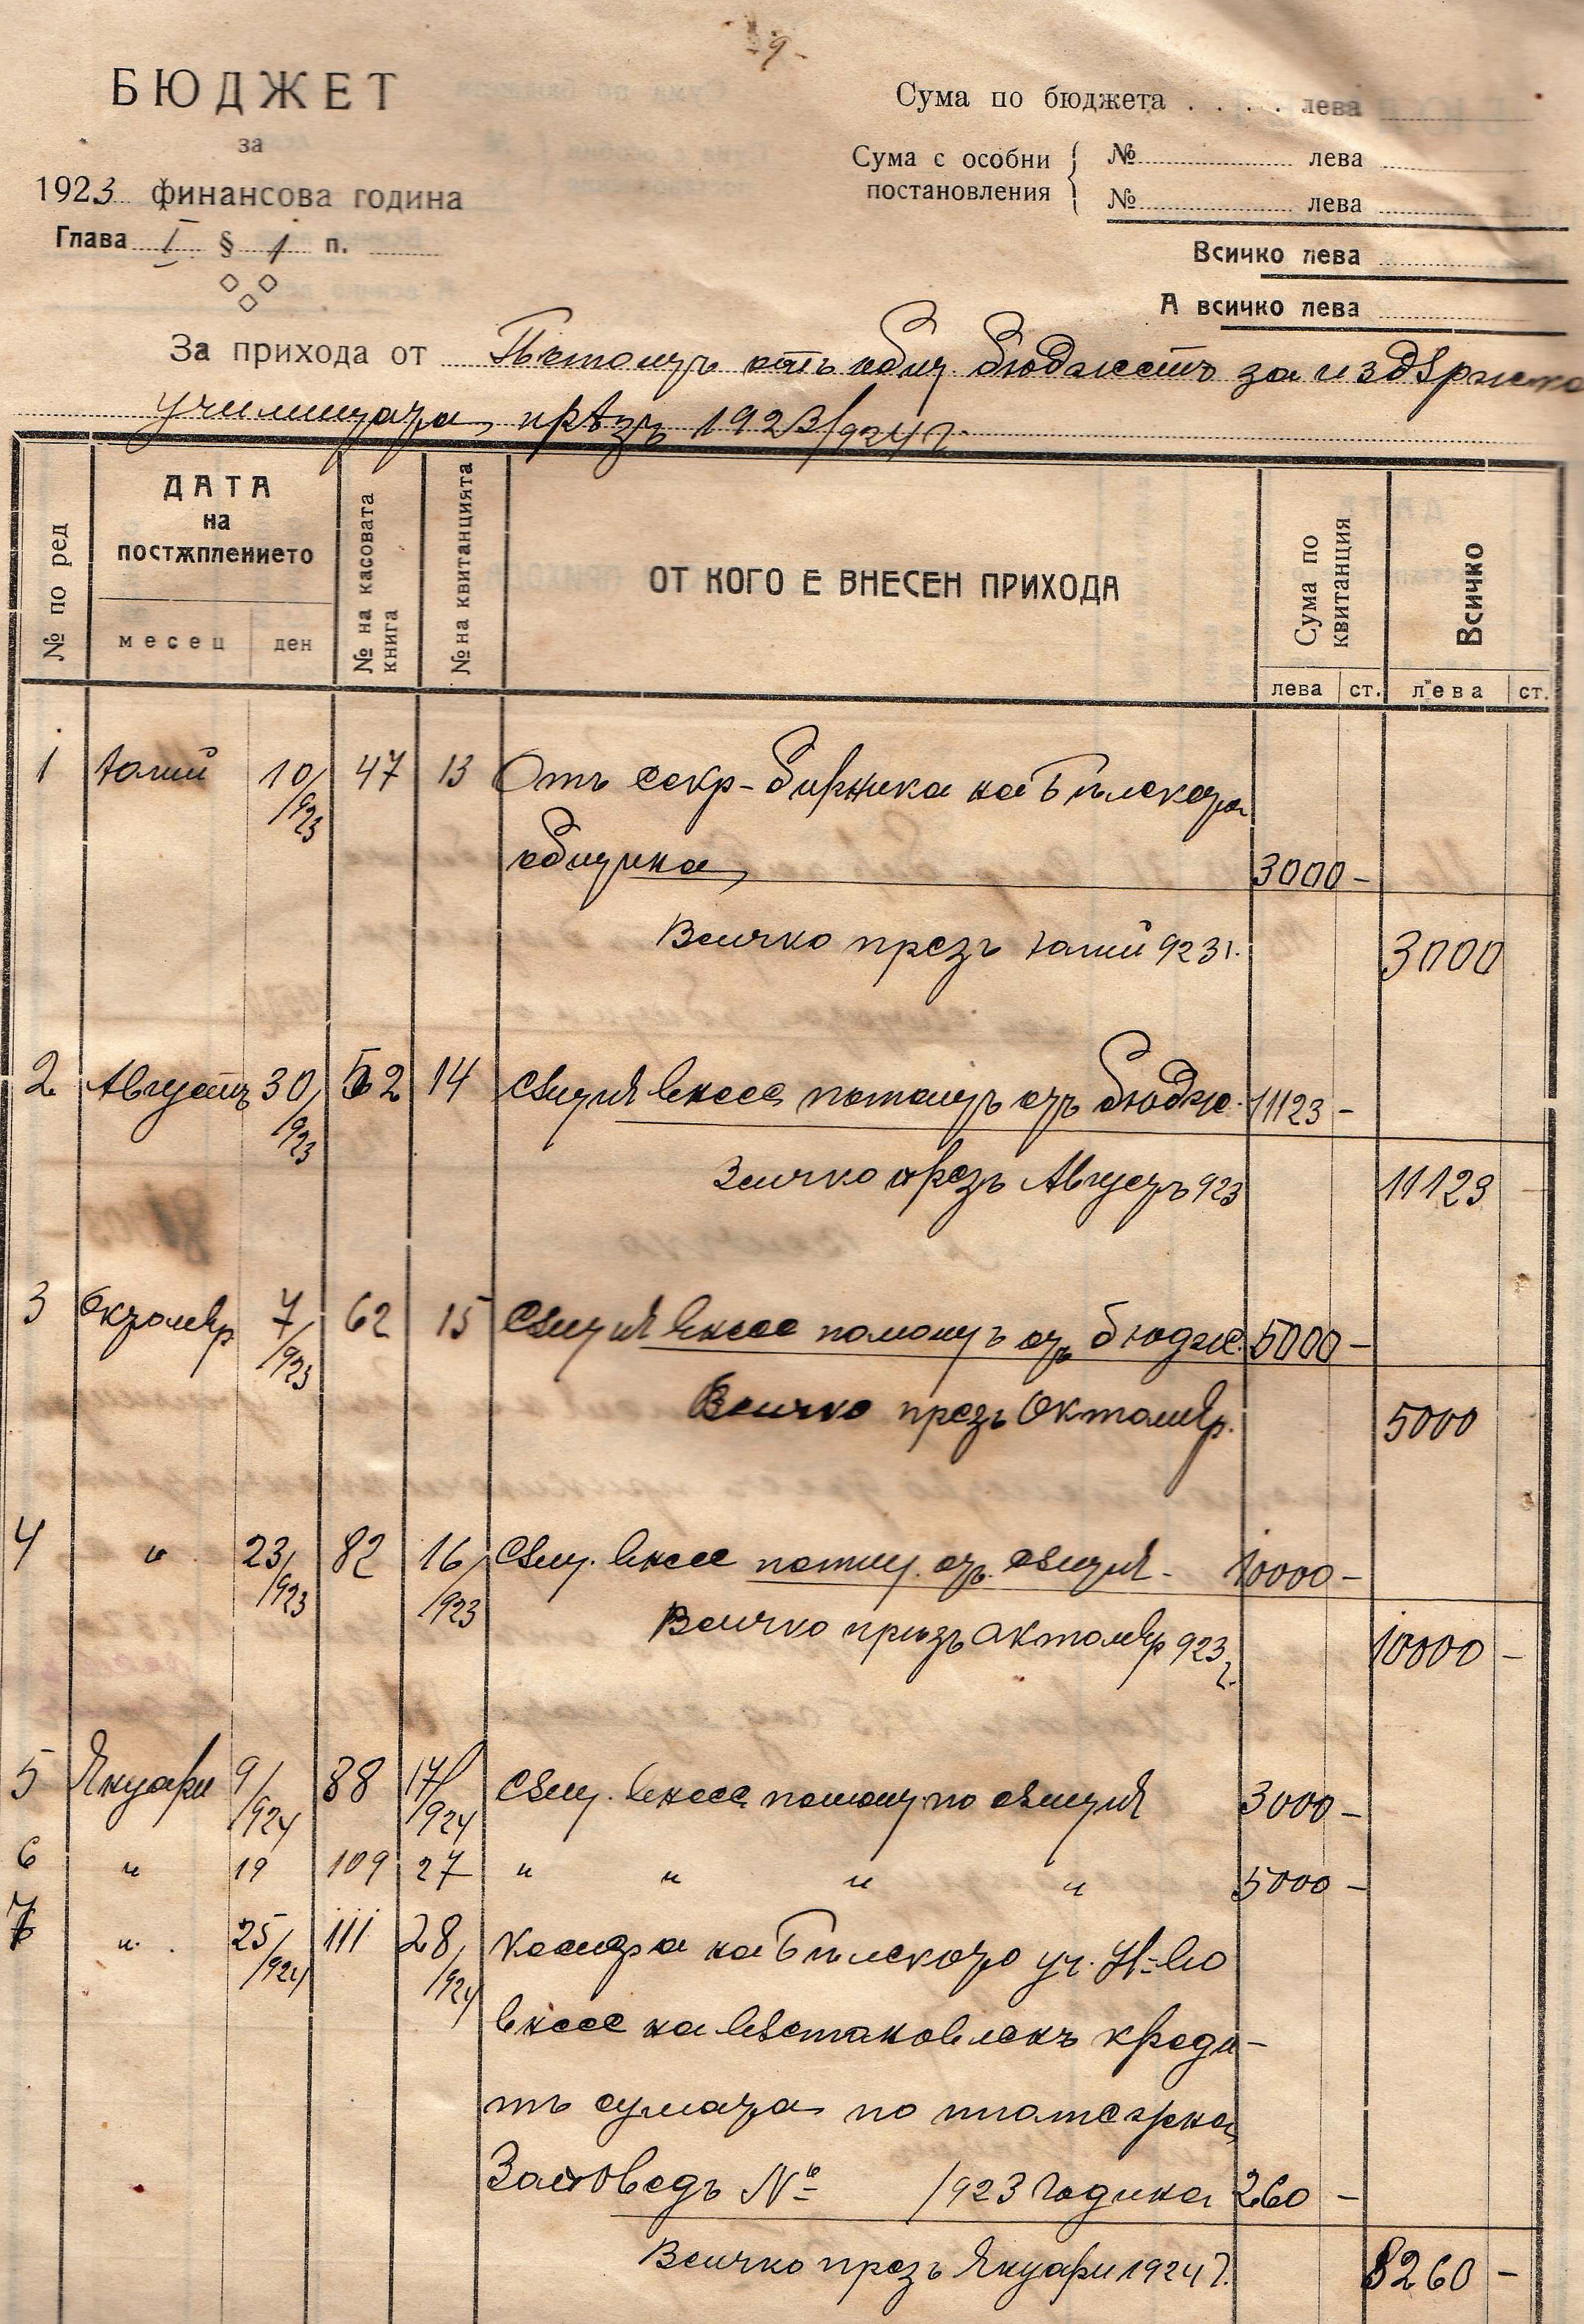 9-
БЮДЖЕТ
за
1923 финансова година
Глава I § 1 п.
Сума по бюджета . . . . лева
Сума с особни постановления
№ лева
№ лева
Всичко лева
А всичко лева
За прихода от Помощь отъ общ. бюджетъ за издѫржка
училищата прѣзъ 1923/924 г.
№ по ред
ДАТА
на
постѫплението
месец
ден
№ на касовата книга
№ на квитанцията
ОТ КОГО Е ВНЕСЕН ПРИХОДА
Сума по квитанция
Всичко
лева ст. лева ст.
1 Юлий 10/923 47 13 Отъ секр-бирника на Бѣлската
община 3000 -
Всичко презъ Юлий 923 г. 3000
2 Августъ 30/923 52 14 Сѫщия внесе помощъ отъ бюдж. 11123 -
Всичко презъ Августъ 923 11123
3 Октомвр 7/923 62 15 Сѫщия внесе помощъ отъ бюдж. 5000 -
Всичко презъ Октомвр. 5000
4 " 23/923 82 16/923 Сѫщ. внесе помощ. отъ сѫщия - 10000 -
Всичко презъ октомвр 923 г. 10000 -
5 Януари 9/924 88 17/924 Сѫщ. внесе помощ по сѫщия 3000 -
6 " 19 109 27 " " " " 5000 -
7 " 25/924 111 28/924 Касиера на Бѣлското уч. Н-во
внесе на вѫстановленъ креди-
тъ сумата по платежна
Заповедъ № /923 година 260 -
Всичко презъ Януари 1924 г. 8260 -